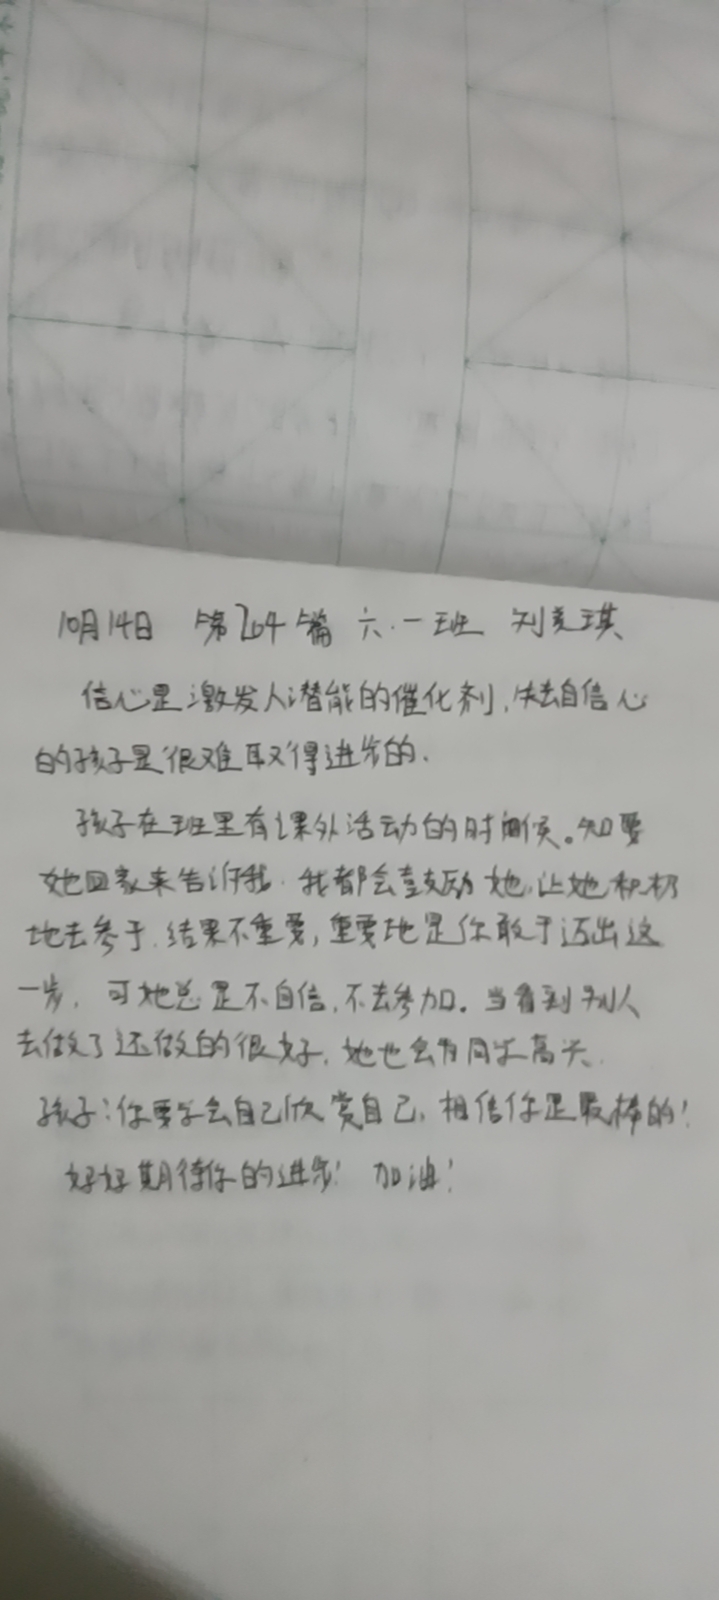 10月14日 第204篇 六.一班 刘美琪
信心是激发人潜能的催化剂,失去自信心
的孩子是很难取得进步的.
孩子在班里有课外活动的时间候。如要
她回家来告诉我.我都会鼓励她,让她积极
地去参于.结果不重要,重要地是你敢于迈出这
一步.可她总是不自信,不去参加。当看到别人
去做了还做的很好,她也会为同学高兴.
孩子:你要学会自己欣赏自己,相信你是最棒的!
好好期待你的进步!加油!